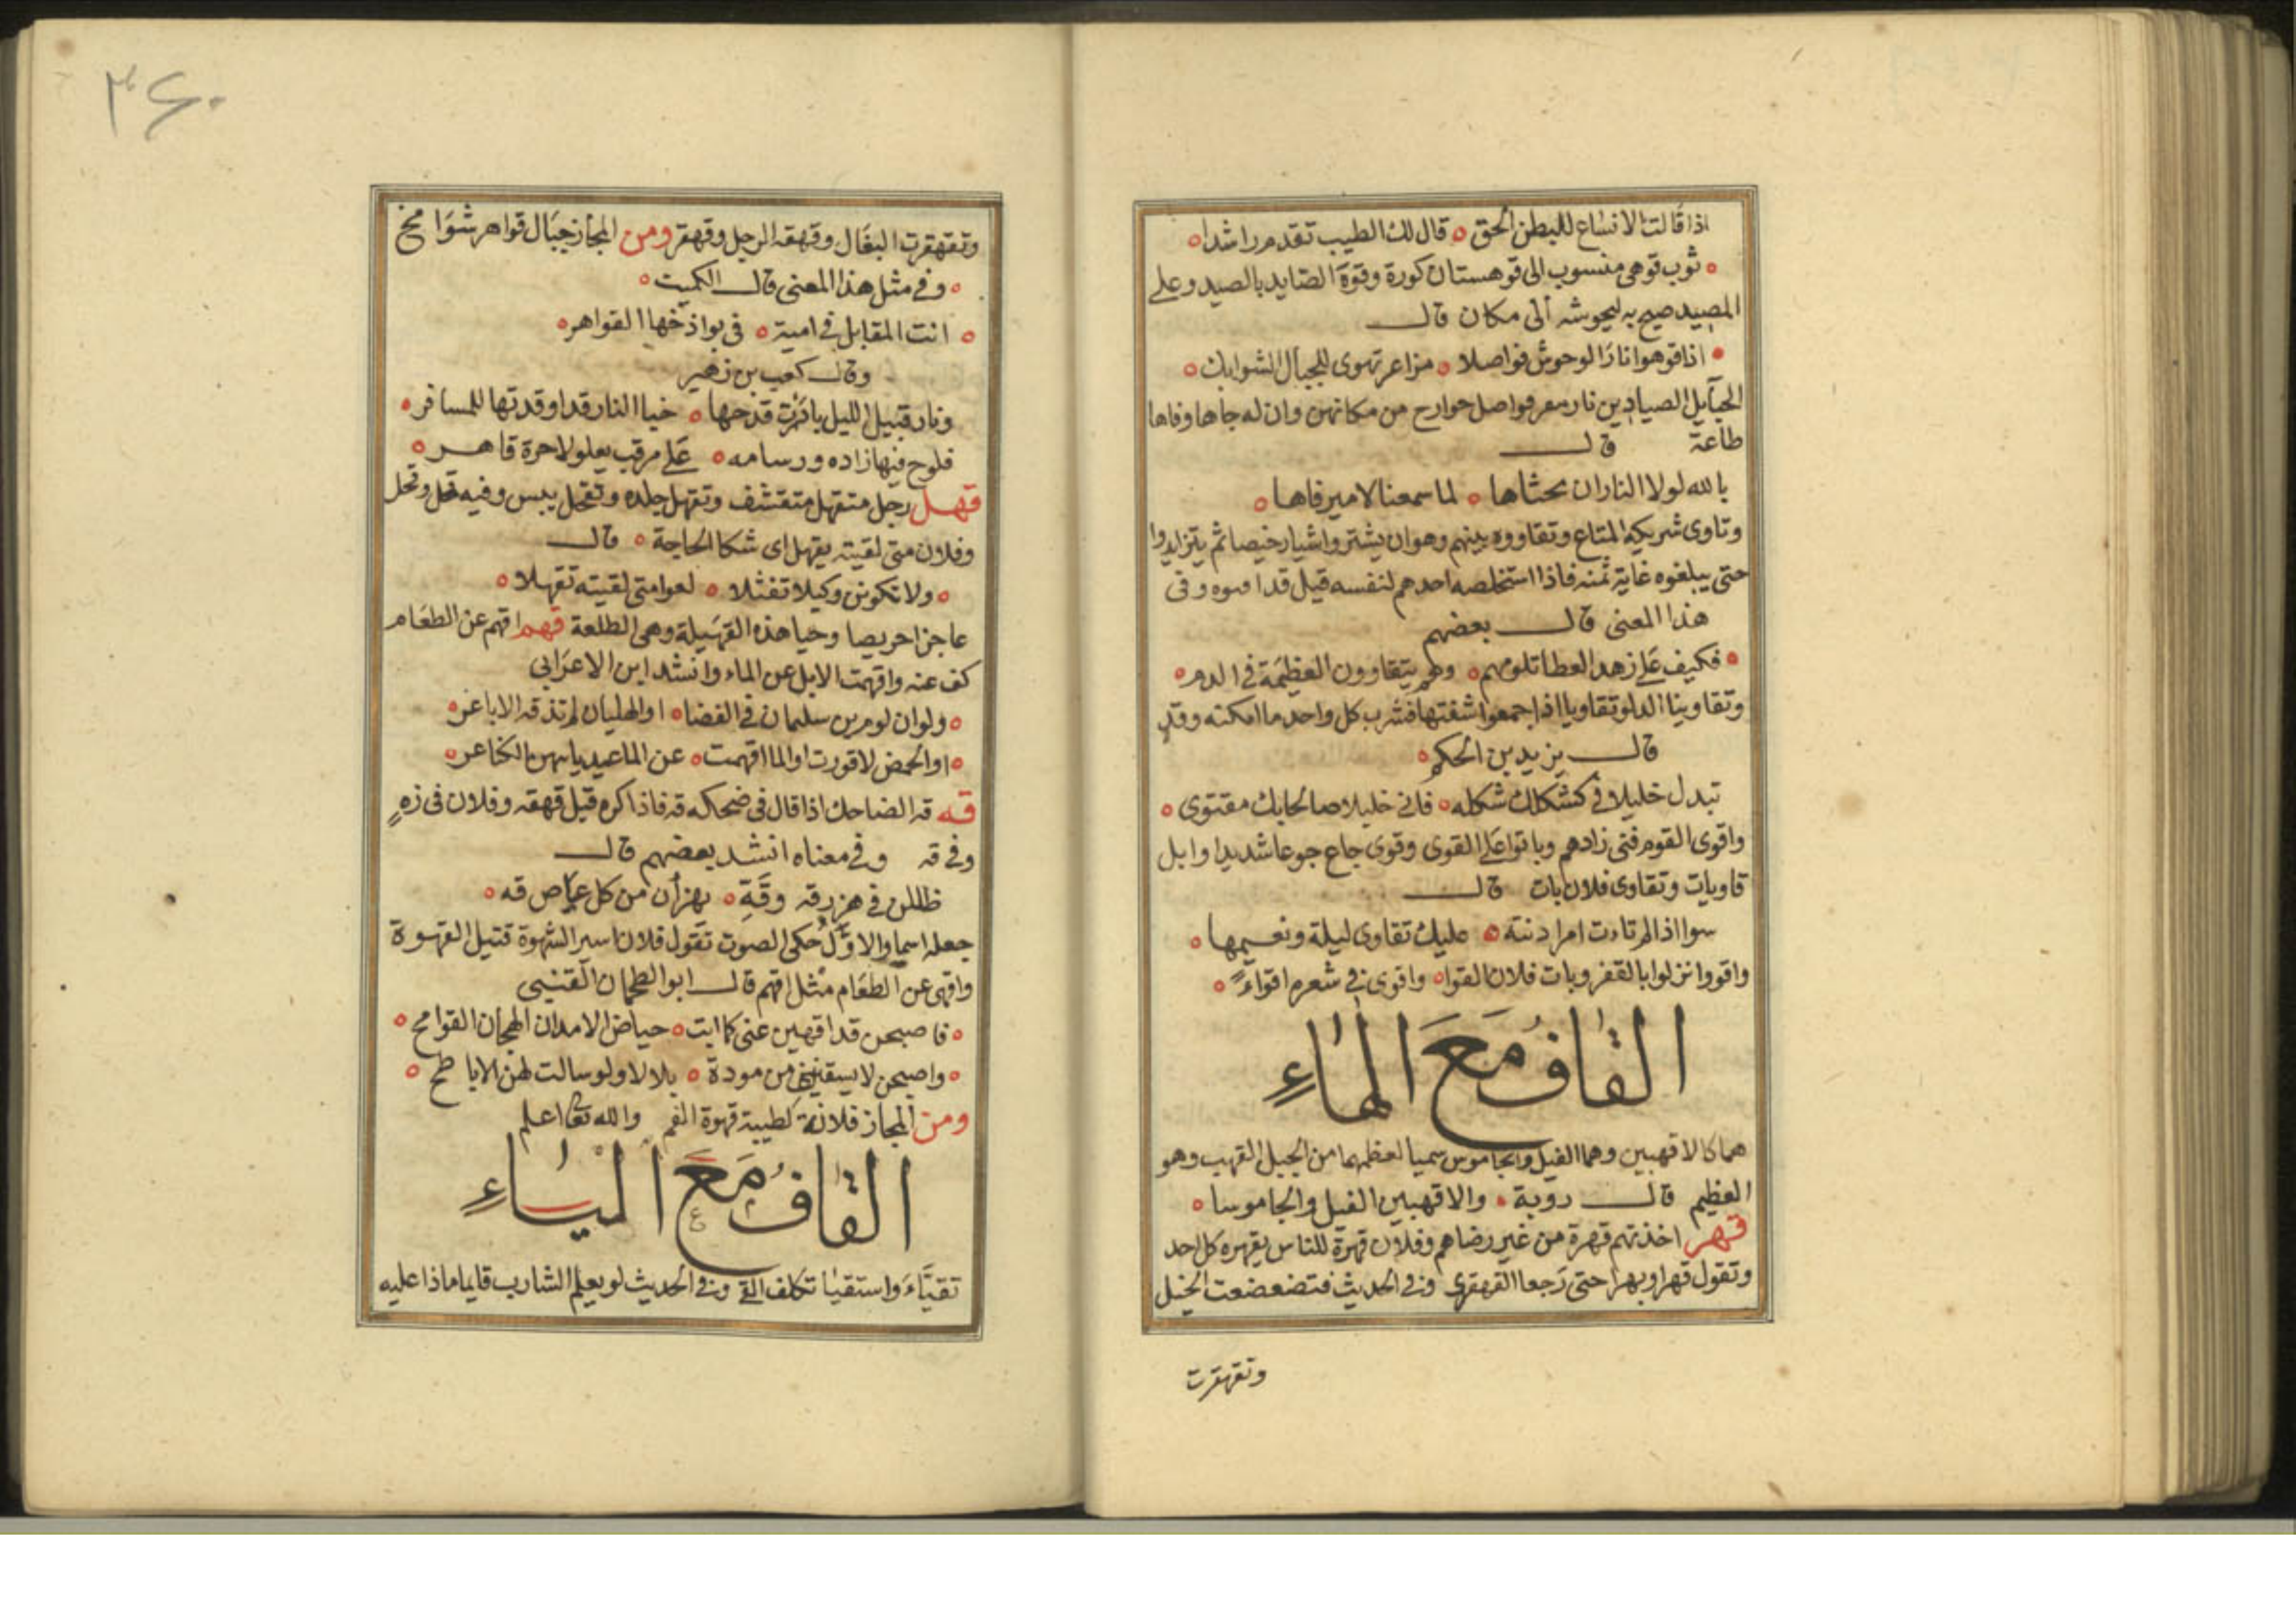 اذا قالت الانساع للبطن الحق ه قال لك الطبيب تقدم راشدا ه
ه ثوب قوهى منسوب الى قوهستان كورة وقوة الصايد بالصيد وعلى
المصيد صيح به ليحوشه الى مكان قال
ه اذا قوهوا نارا لوحوش فواصلا ه مزاعر تهوى للجبال الشوابك ه
الحبايل الصيادين نار معر فواصل حوارح من مكانهن وان له جاها وفاها
طاعة قال
بالله لولا النار ان نحثاها ه لما سمعنا لامير فاها ه
وتاوى شريكه المتاع وتقاووه بينهم وهو ان يشتروا شيا رخيصا ثم يتزايدوا
حتى يبلغوه غاية ثمنه فاذا استخلصه احدهم لنفسه قيل قد وفى
هذا المعنى قال بعضهم
ه فكيف على زهد العطا تلومهم ه وهم يتقاوون العظيمة فى الدم ه
وتقاوينا الدلو تقاويا اذا جمعوا شفتها فشرب كل واحد ما امكنه وقد
قال يزيد بن الحكم ه
تبدل خليلا فى كشكلك شكله ه فانى خليلا صالحا بك مقتوى ه
واقوى القوم فنى زادهم وباتوا على القوى وقوى جاع جوعا شديدا وابل
قاويات وتقاوى فلان بات قال
سوا اذا لم تات امرا دنية ه عليك تقاوى ليلة ونعيمها ه
واقووا نزلوا بالقفر وبات فلان القوا ه واقوى فى شعره اقواءً ه
القاف مع الهاء
هما كالاقهبين وهما الفيل والجاموس سميا لعظمهما من الجبل القهب وهو
العظيم قال روبة ه والاقهبين الفيل والجاموسا ه
قهر اخذتهم قهرة من غير رضاهم وفلان قهرة للناس يقهره كل احد
وتقول قهرا وبهرا حتى رجعا القهقرى وفى الحديث فتضعضعت الخيل
وتقهقرت
٣٤٠
وتقهقرت البغال وقهقه الرجل وقهقر ومن المجاز جبال قواهر شوامخ
ه وفى مثل هذا المعنى قال الكميت ه
ه انت المقابل فى امية ه فى بواذخها القواهر ه
وقال كعب بن زهير
ونار قبيل الليل بادرت قدحها ه خيا النار قد اوقدتها للمسافر ه
فلوح فيها زاده ورسامه ه على مرقب يعلو لاحرة قاهر ه
قهل رجل متقهل متقشف وتقهل جلده وتقحل يبس وفيه قحل وتحل
وفلان متى لقيته يقهل اى شكا الحاجة ه قال
ه ولا تكونن وكيلا تفثلا ه لعوا متى لقيته تقهلا ه
عاجزا حريصا وحيا هذه القهيلة وهى الطلعة قهم اقهم عن الطعام
كف عنه واقهمت الابل عن الماء وانشد ابن الاعرابى
ه ولو ان لوم بن سليمان فى الغضا ه او الهليان لم تذقه الاباعر ه
ه او الحمض لاقورت او الما اقهمت ه عن الما الكناعر ه
قه قه الضاحك اذا قال فى ضحكه قه فاذا كرره قيل قهقه وفلان فى زه
وفى قه وفى معناه انشد بعضهم قال
ظللن فى هزرقه وقة ه يهزان من كل عباص قه ه
جعله اسما والاول حكى الصوت تقول فلان اسير الشهوة قتيل القهوة
واقهى عن الطعام مثل اقهم قال ابو الطحمان القنيبى
ه فاصبحن قد اقهين عنى كما ابت ه حياض الامدان الهجان القوامح ه
ه واصبحن لا يسقيننى من مودة ه بلالا ولو سالت لهن الاباطح ه
ومن المجاز فلانة لطيبة قهوة الفم والله تعالى اعلم
القاف مع الياء
تقيّاء واستقيا تكلف القى وفى الحديث لو يعلم الشارب قايما ماذا عليه